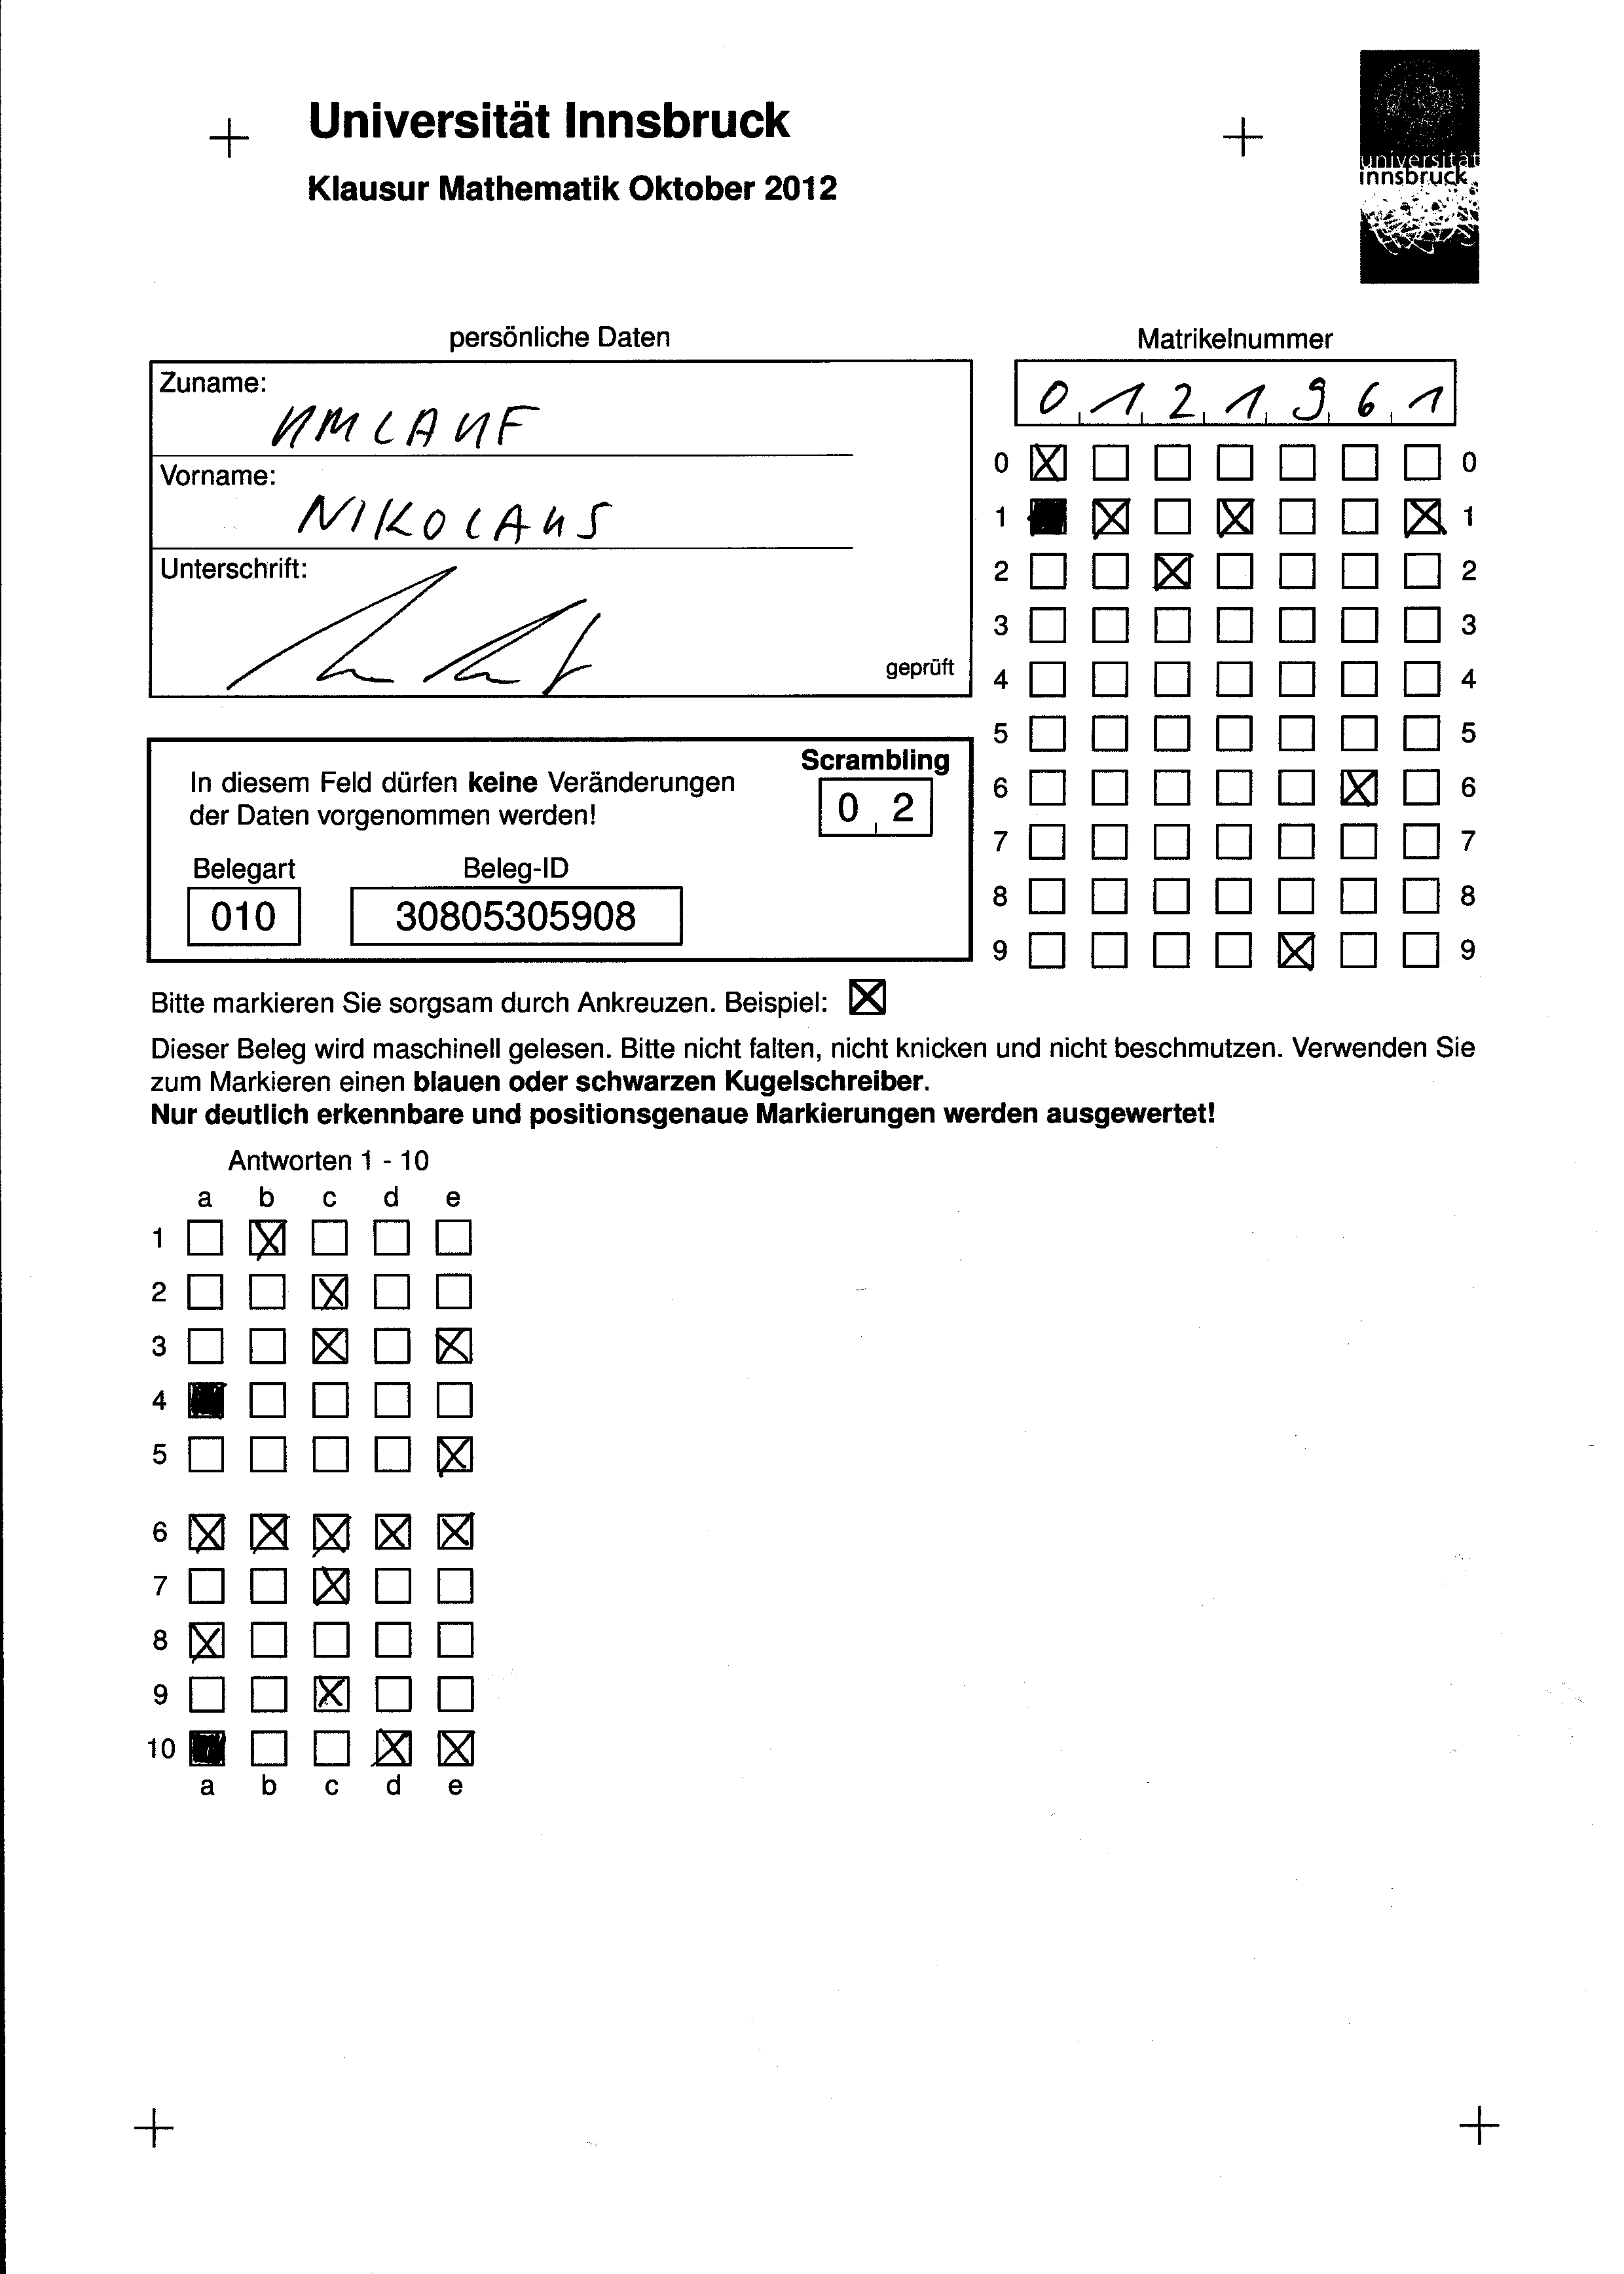 Universität Innsbruck
Klausur Mathematik Oktober 2012
universität
innsbruck
persönliche Daten
Zuname:
UMLAUF
Vorname:
NIKOLAUS
Unterschrift:
geprüft
Matrikelnummer
0 1 2 1 9 6 1
0 0
1 1
2 2
3 3
4 4
5 5
6 6
7 7
8 8
9 9
In diesem Feld dürfen keine Veränderungen
der Daten vorgenommen werden!
Scrambling
0 2
Belegart Beleg-ID
010 30805305908
Bitte markieren Sie sorgsam durch Ankreuzen. Beispiel:
Dieser Beleg wird maschinell gelesen. Bitte nicht falten, nicht knicken und nicht beschmutzen. Verwenden Sie
zum Markieren einen blauen oder schwarzen Kugelschreiber.
Nur deutlich erkennbare und positionsgenaue Markierungen werden ausgewertet!
Antworten 1 - 10
a b c d e
1
2
3
4
5
6
7
8
9
10
a b c d e